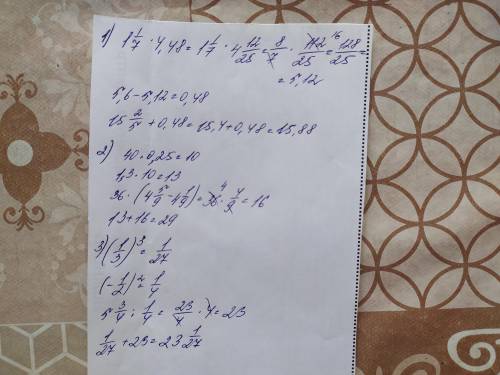 1) 1 1/7 · 4,48 = 1 1/7 · 4 12/25 = 8/7 · 112/25 = 16 128/25 =
= 5,12
5,6 - 5,12 = 0,48
15 2/5 + 0,48 = 15,4 + 0,48 = 15,88
2) 40 · 0,25 = 10
1,3 · 10 = 13
36 · (4 5/9 - 4 1/9) = 36 4 · 4/9 = 16
13 + 16 = 29
3) (1/3)^3 = 1/27
(-1/2)^2 = 1/4
5 3/4 : 1/4 = 23/4 · 4 = 23
1/27 + 23 = 23 1/27